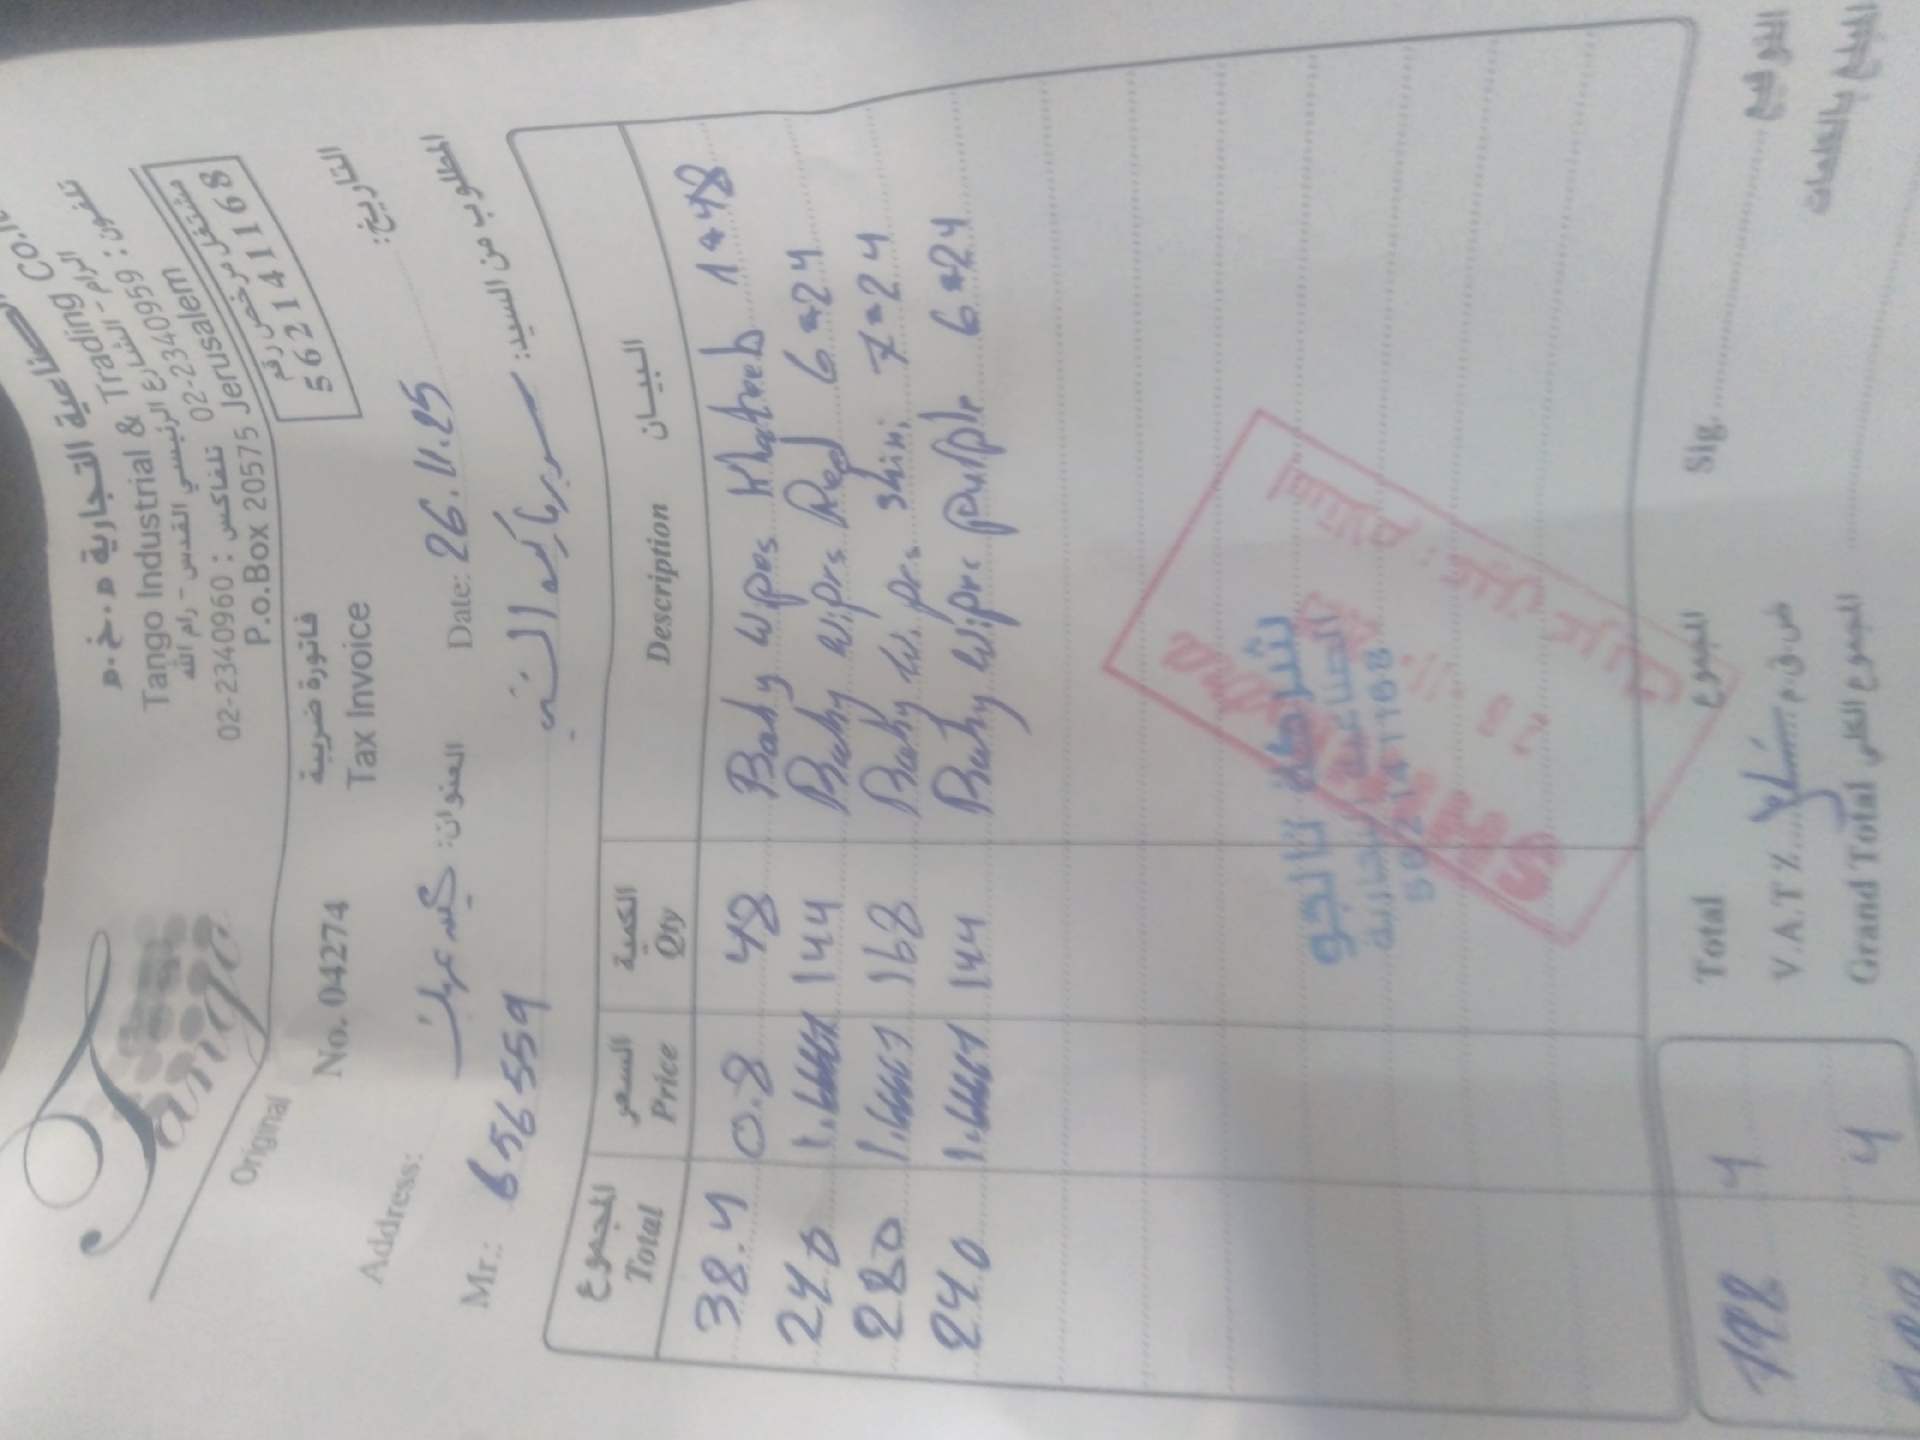 الصناعية التجارية م.خ.م
Tango Industrial & Trading Co.
الرام - الشارع الرئيسي القدس - رام الله
تلفون : 02-2340959 تلفاكس : 02-2340960
P.o.Box 20575 Jerusalem
مشتغل مرخص رقم
562141168
Tango
Original
فاتورة ضريبية
No. 04274 Tax Invoice التاريخ:
Date: 26.11.25
Address: العنوان: المطلوب من السيد:
Mr.: 6565559 سوبر ماركت
المجموع السعر الكمية البيان
Total Price Qty Description
38.4 0.8 48 Baby wipes Khateeb 1*48
240 1.6667 144 Baby wipes Red 6*24
280 1.6667 168 Baby wipes shini 7*24
240 1.6667 144 Baby wipes purple 6*24
شركة تانجو
الصناعية التجارية
562141168
استلام
798 4 Total المجموع Sig. التوقيع
V.A.T % ض.ق.م
4 Grand Total المجموع الكلي المبلغ بالكلمات